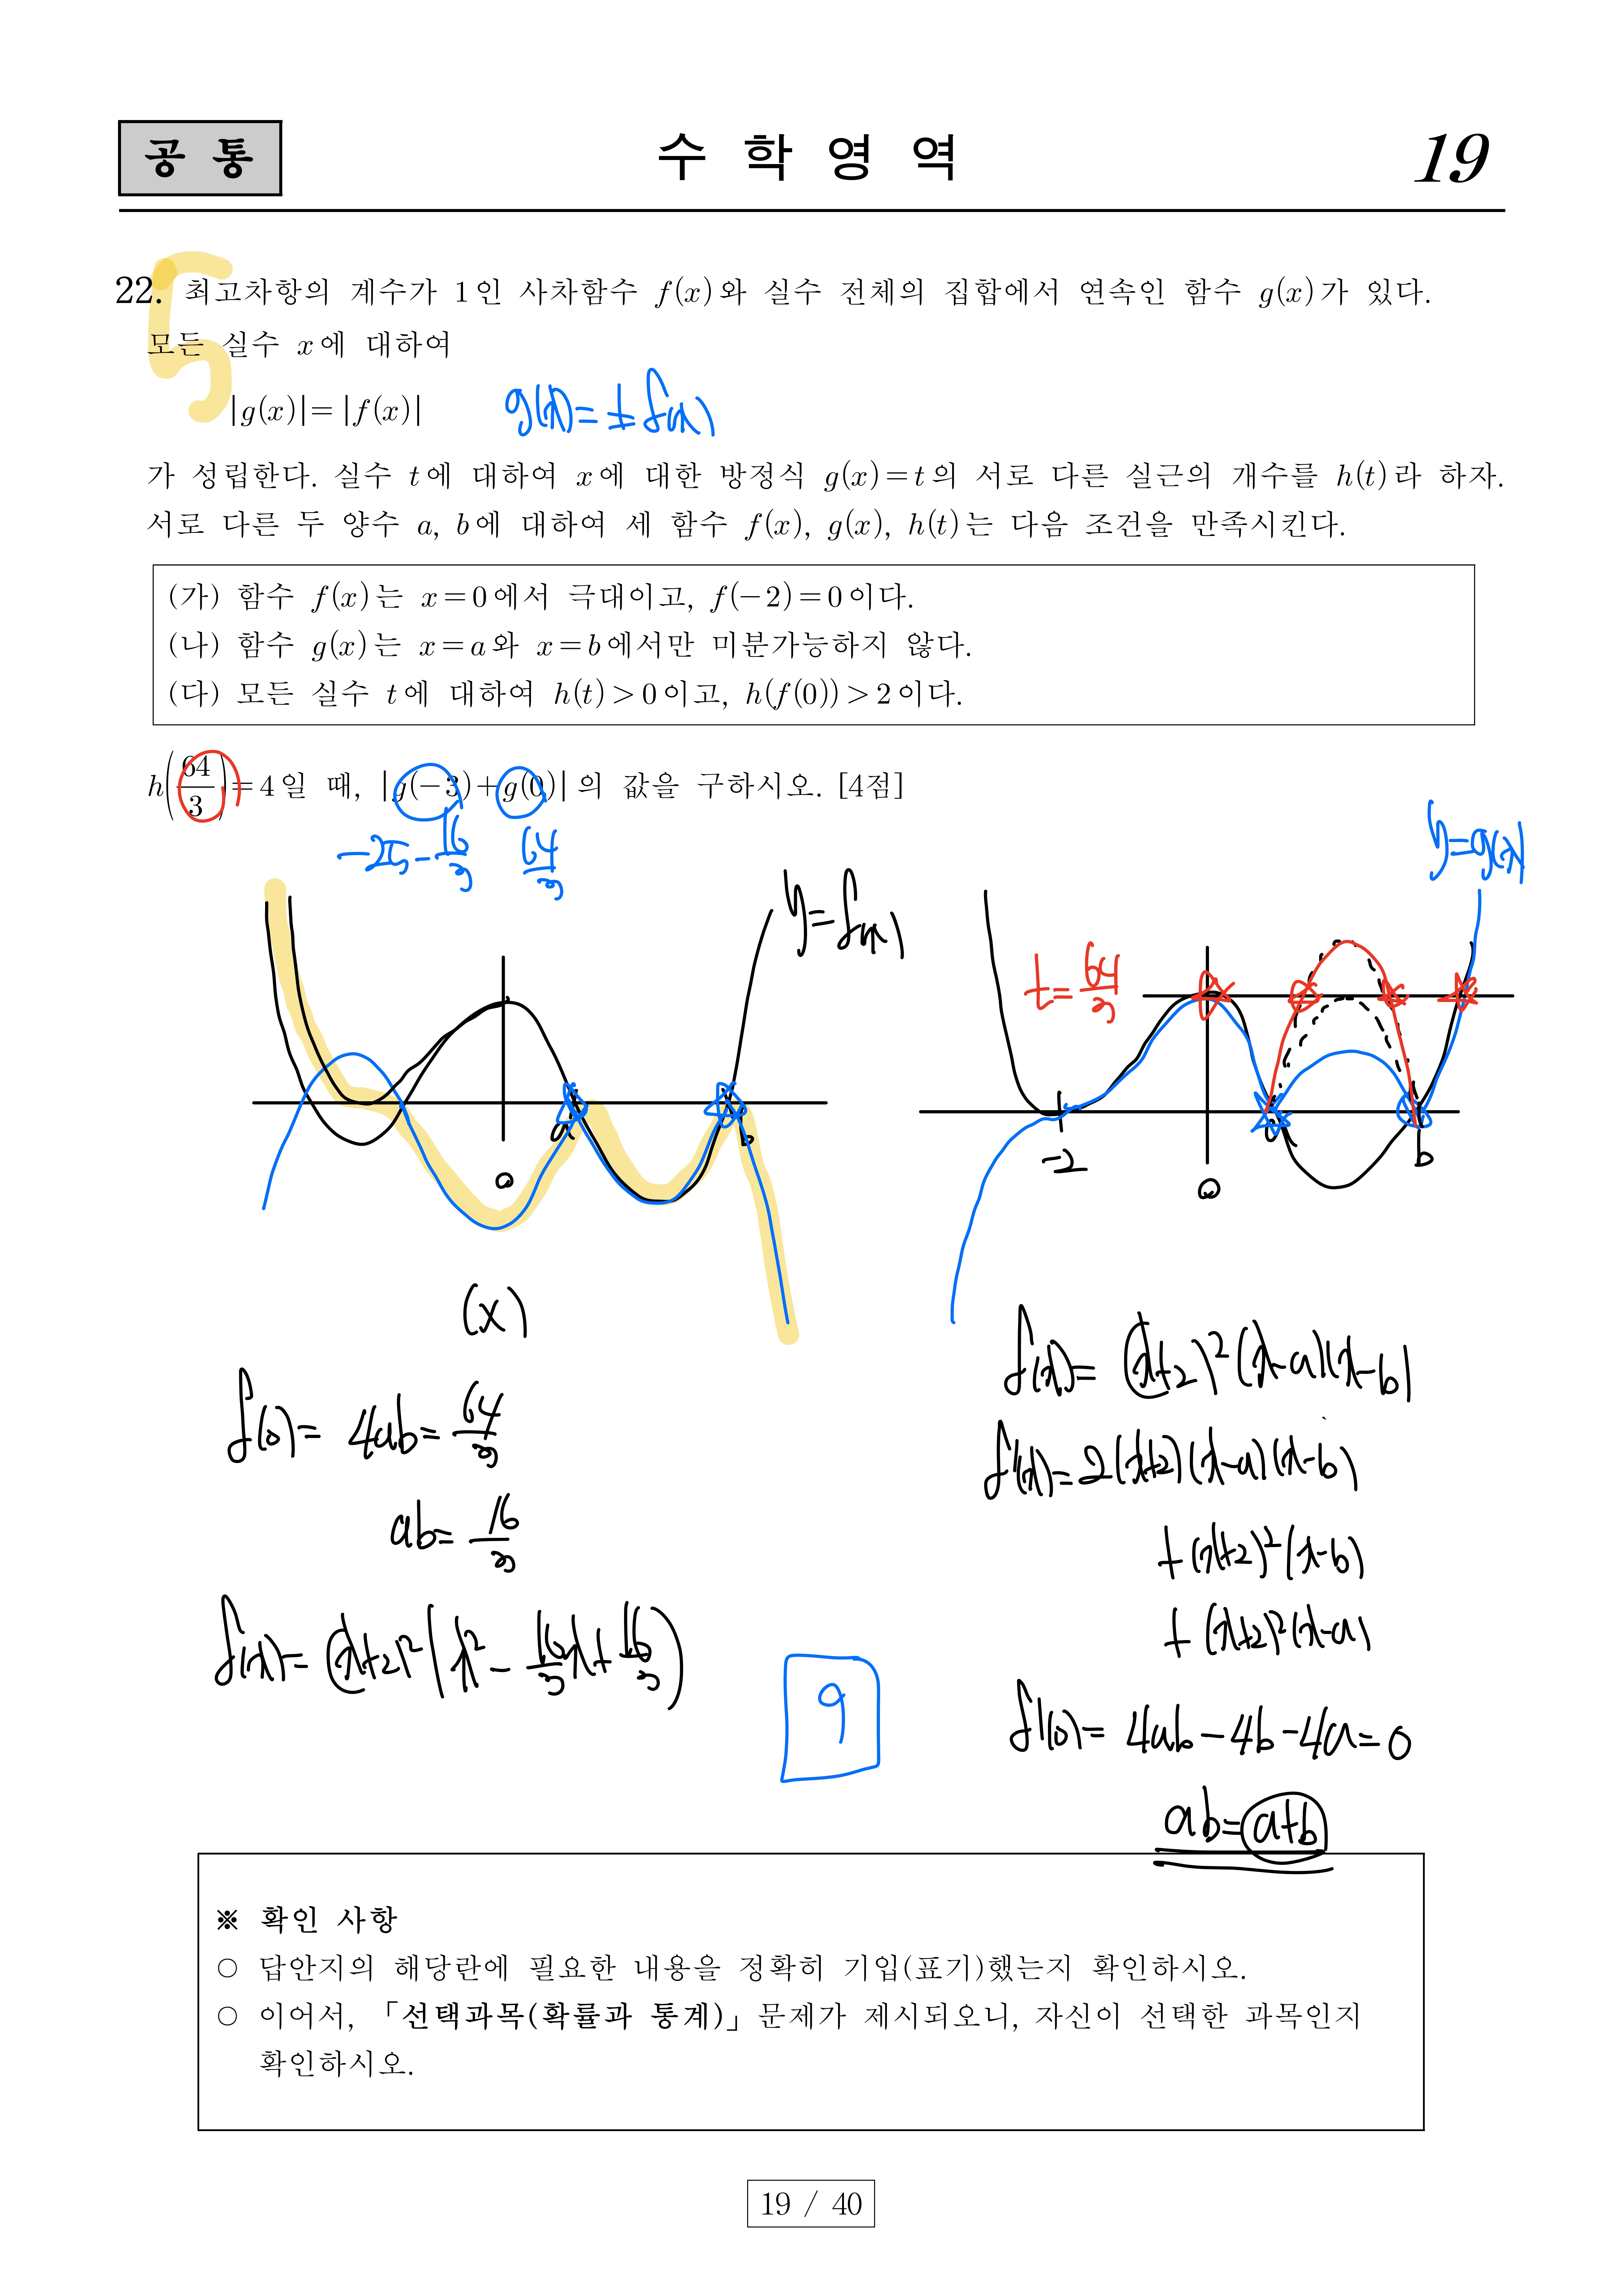 공 통
수 학 영 역
19
22. 최고차항의 계수가 1인 사차함수 f(x)와 실수 전체의 집합에서 연속인 함수 g(x)가 있다.
5
모든 실수 x에 대하여
|g(x)|=|f(x)|
g(x)=±f(x)
가 성립한다. 실수 t에 대하여 x에 대한 방정식 g(x)=t의 서로 다른 실근의 개수를 h(t)라 하자.
서로 다른 두 양수 a, b에 대하여 세 함수 f(x), g(x), h(t)는 다음 조건을 만족시킨다.
(가) 함수 f(x)는 x=0에서 극대이고, f(-2)=0이다.
(나) 함수 g(x)는 x=a와 x=b에서만 미분가능하지 않다.
(다) 모든 실수 t에 대하여 h(t)>0이고, h(f(0))>2이다.
h(64/3)=4일 때, |g(-3)+g(0)|의 값을 구하시오. [4점]
-25-16/3 64/3
y=g(x)
y=f(x)
t=64/3
a b
0
-2 0 b
(x)
f(x)= (x+2)²(x-a)(x-b)
f(0)= 4ab=64/3
f'(x)=2(x+2)(x-a)(x-b)
ab=16/3
+(x+2)²(x-b)
+(x+2)²(x-a)
f(x)=(x+2)²(x²-16/3x+16/3)
9
f'(0)= 4ab-4b-4a=0
ab=a+b
※ 확인 사항
○ 답안지의 해당란에 필요한 내용을 정확히 기입(표기)했는지 확인하시오.
○ 이어서, 「선택과목(확률과 통계)」 문제가 제시되오니, 자신이 선택한 과목인지
확인하시오.
19 / 40